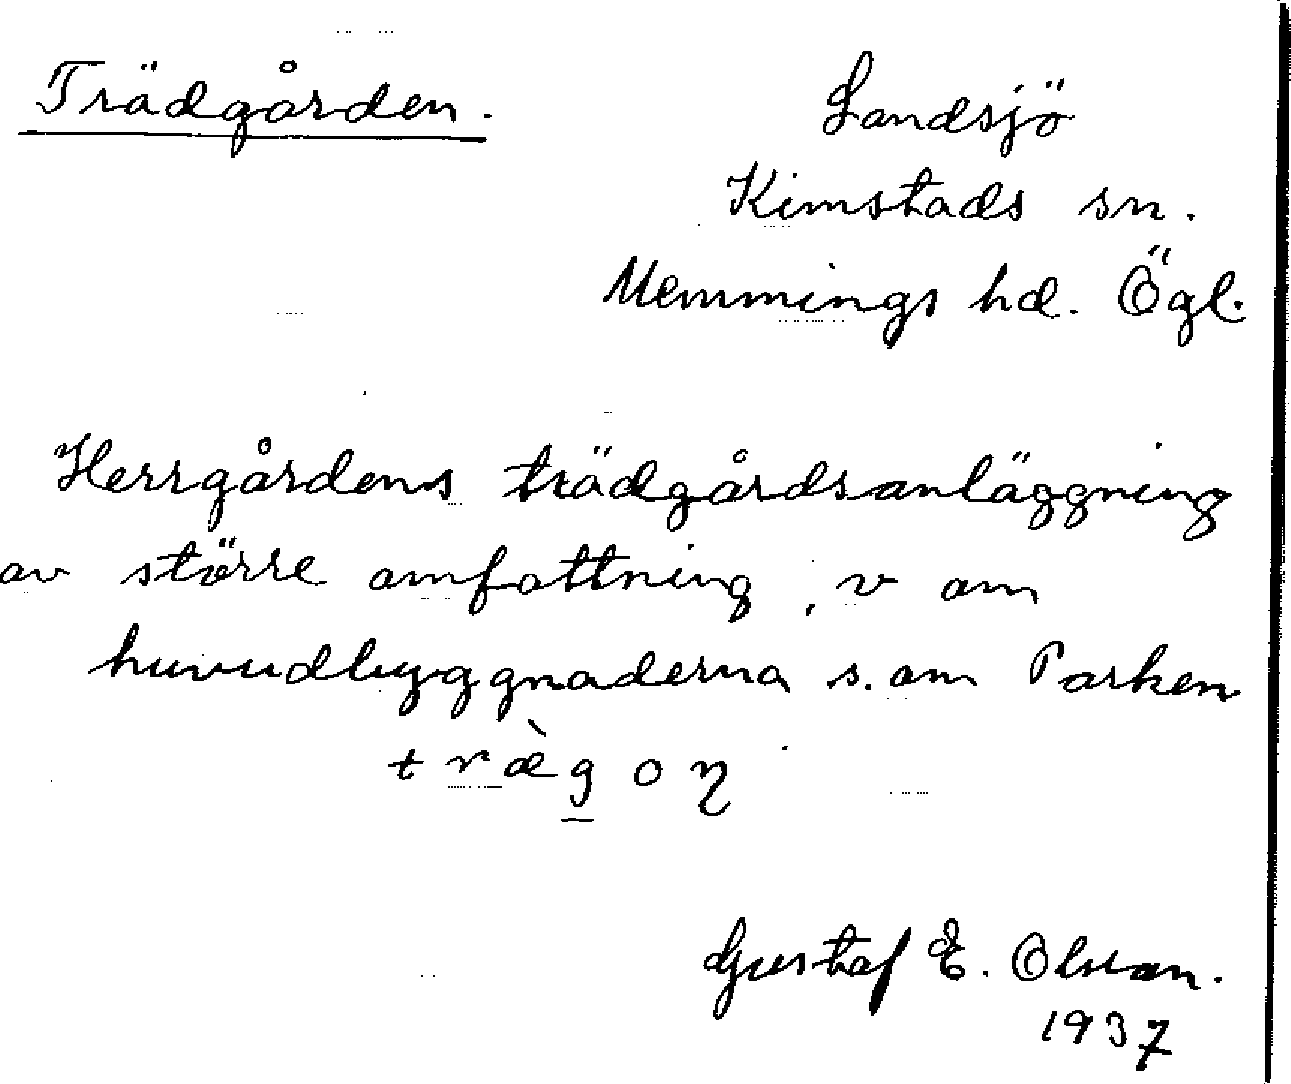 Trädgården.
Landsjö
Kimstads sn.
Memmings hd. Ögl.
Herrgårdens trädgårdsanläggning
av större omfattning, v om
huvudbyggnaderna s.om Parken
træ̀goη
Gustaf E. Olsson.
1937